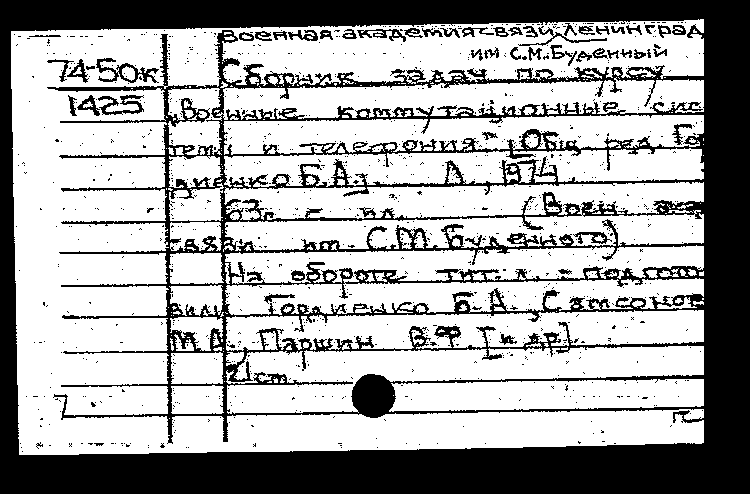 Военная академия связи, Ленинград
им С.М.Буденный
74-50к Сборник задач по курсу
1425 „Военные коммутационные сис
темы и телефония." [Общ ред. Гор
диенко Б.А.]. Л., 1974.
63л. с ил. (Воен. ака
связи им. С.М.Буденного).
На обороте тит. л. : Подгото
вили Гордиенко Б.А., Самсонов
М.А., Паршин В.Ф. [и др].
21 см.